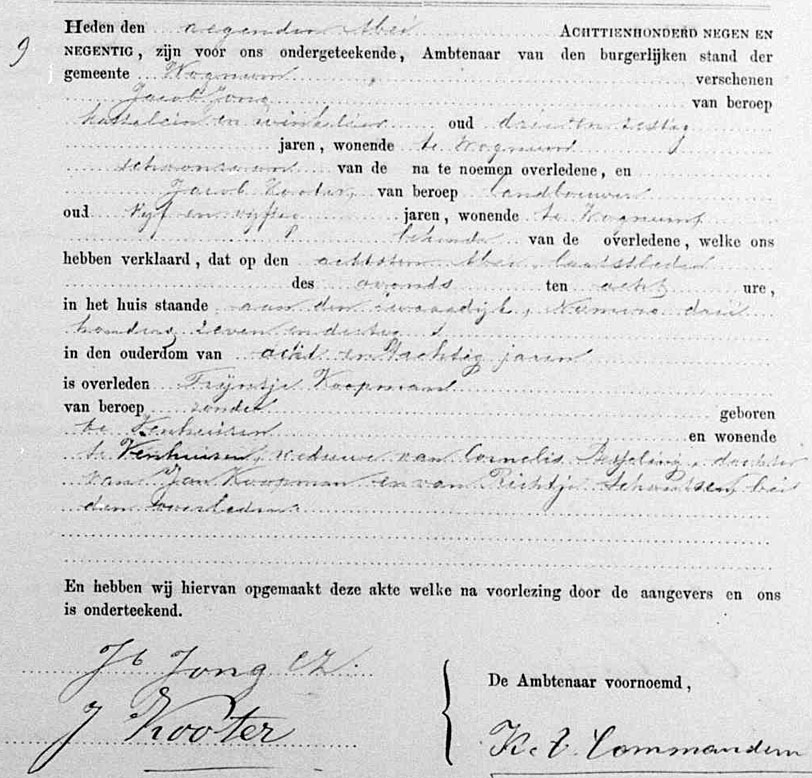 9
Heden den negenden Mei ACHTTIENHONDERD NEGEN EN
NEGENTIG, zijn voor ons ondergeteekende, Ambtenaar van den burgerlijken stand der
gemeente Wognum verschenen
Jacob Jong van beroep
kastelein en winkelier oud drie en zestig
jaren, wonende te Wognum
schoonzoon van de na te noemen overledene, en
Jacob Kooter, van beroep landbouwer
oud vijf en vijftig jaren, wonende te Wognum
bekende van de overledene, welke ons
hebben verklaard, dat op den achtsten Mei laatstleden
des avonds ten acht ure,
in het huis staande aan den, Numero drie
honderd zeven en dertig
in den ouderdom van acht en tachtig jaren
is overleden Trijntje Koopman
van beroep zonder geboren
te Venhuizen en wonende
te Venhuizen, weduwe van Cornelis, dochter
van Jan Koopman en van Schouten, bei
den overleden
En hebben wij hiervan opgemaakt deze akte welke na voorlezing door de aangevers en ons
is onderteekend.
Jb Jong CZ.
De Ambtenaar voornoemd,
J Kooter
K. Commandeur